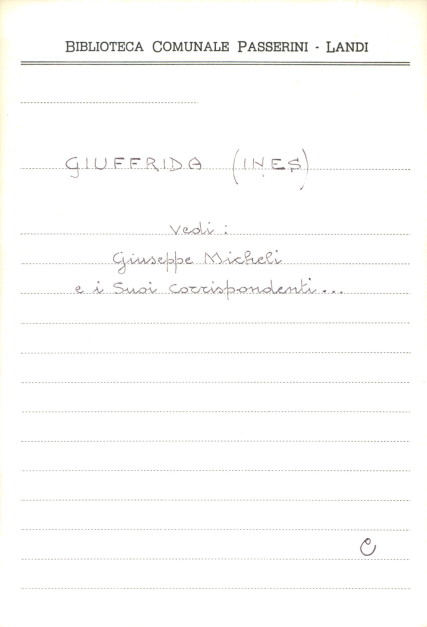 BIBLIOTECA COMUNALE PASSERINI - LANDI
GIUFFRIDA (INES)
Vedi :
Giuseppe Micheli
e i Suoi Corrispondenti...
C